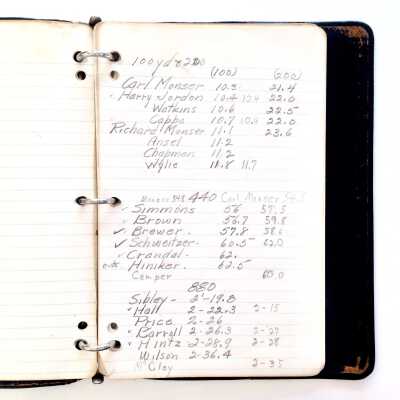 100 yd & 220
(100) (220)
Carl Monser 10.3 21.4
Harry Jordon 10.4 10.4 22.0
Watkins 10.6 22.5
Capps 10.7 10.9 22.0
Richard Monser 11.1 23.6
Ansel 11.2
Chapman 11.2
Wylie 11.8 11.7
440 Carl Monser 54.5
Simmons 56 57.5
Brown 56.7 59.8
Brewer 57.8 58.6
Schweitzer 60.5 62.0
Crandal 62.
Hiniker 62.5
Cemper 65.0
880
Sibley - 2-19.8
Hall 2-22.3 2-15
Price 2-26
Barroll 2-26.3 2-27
Hintz 2-28.9 2-28
Wilson 2-36.4
McCloy 2-35